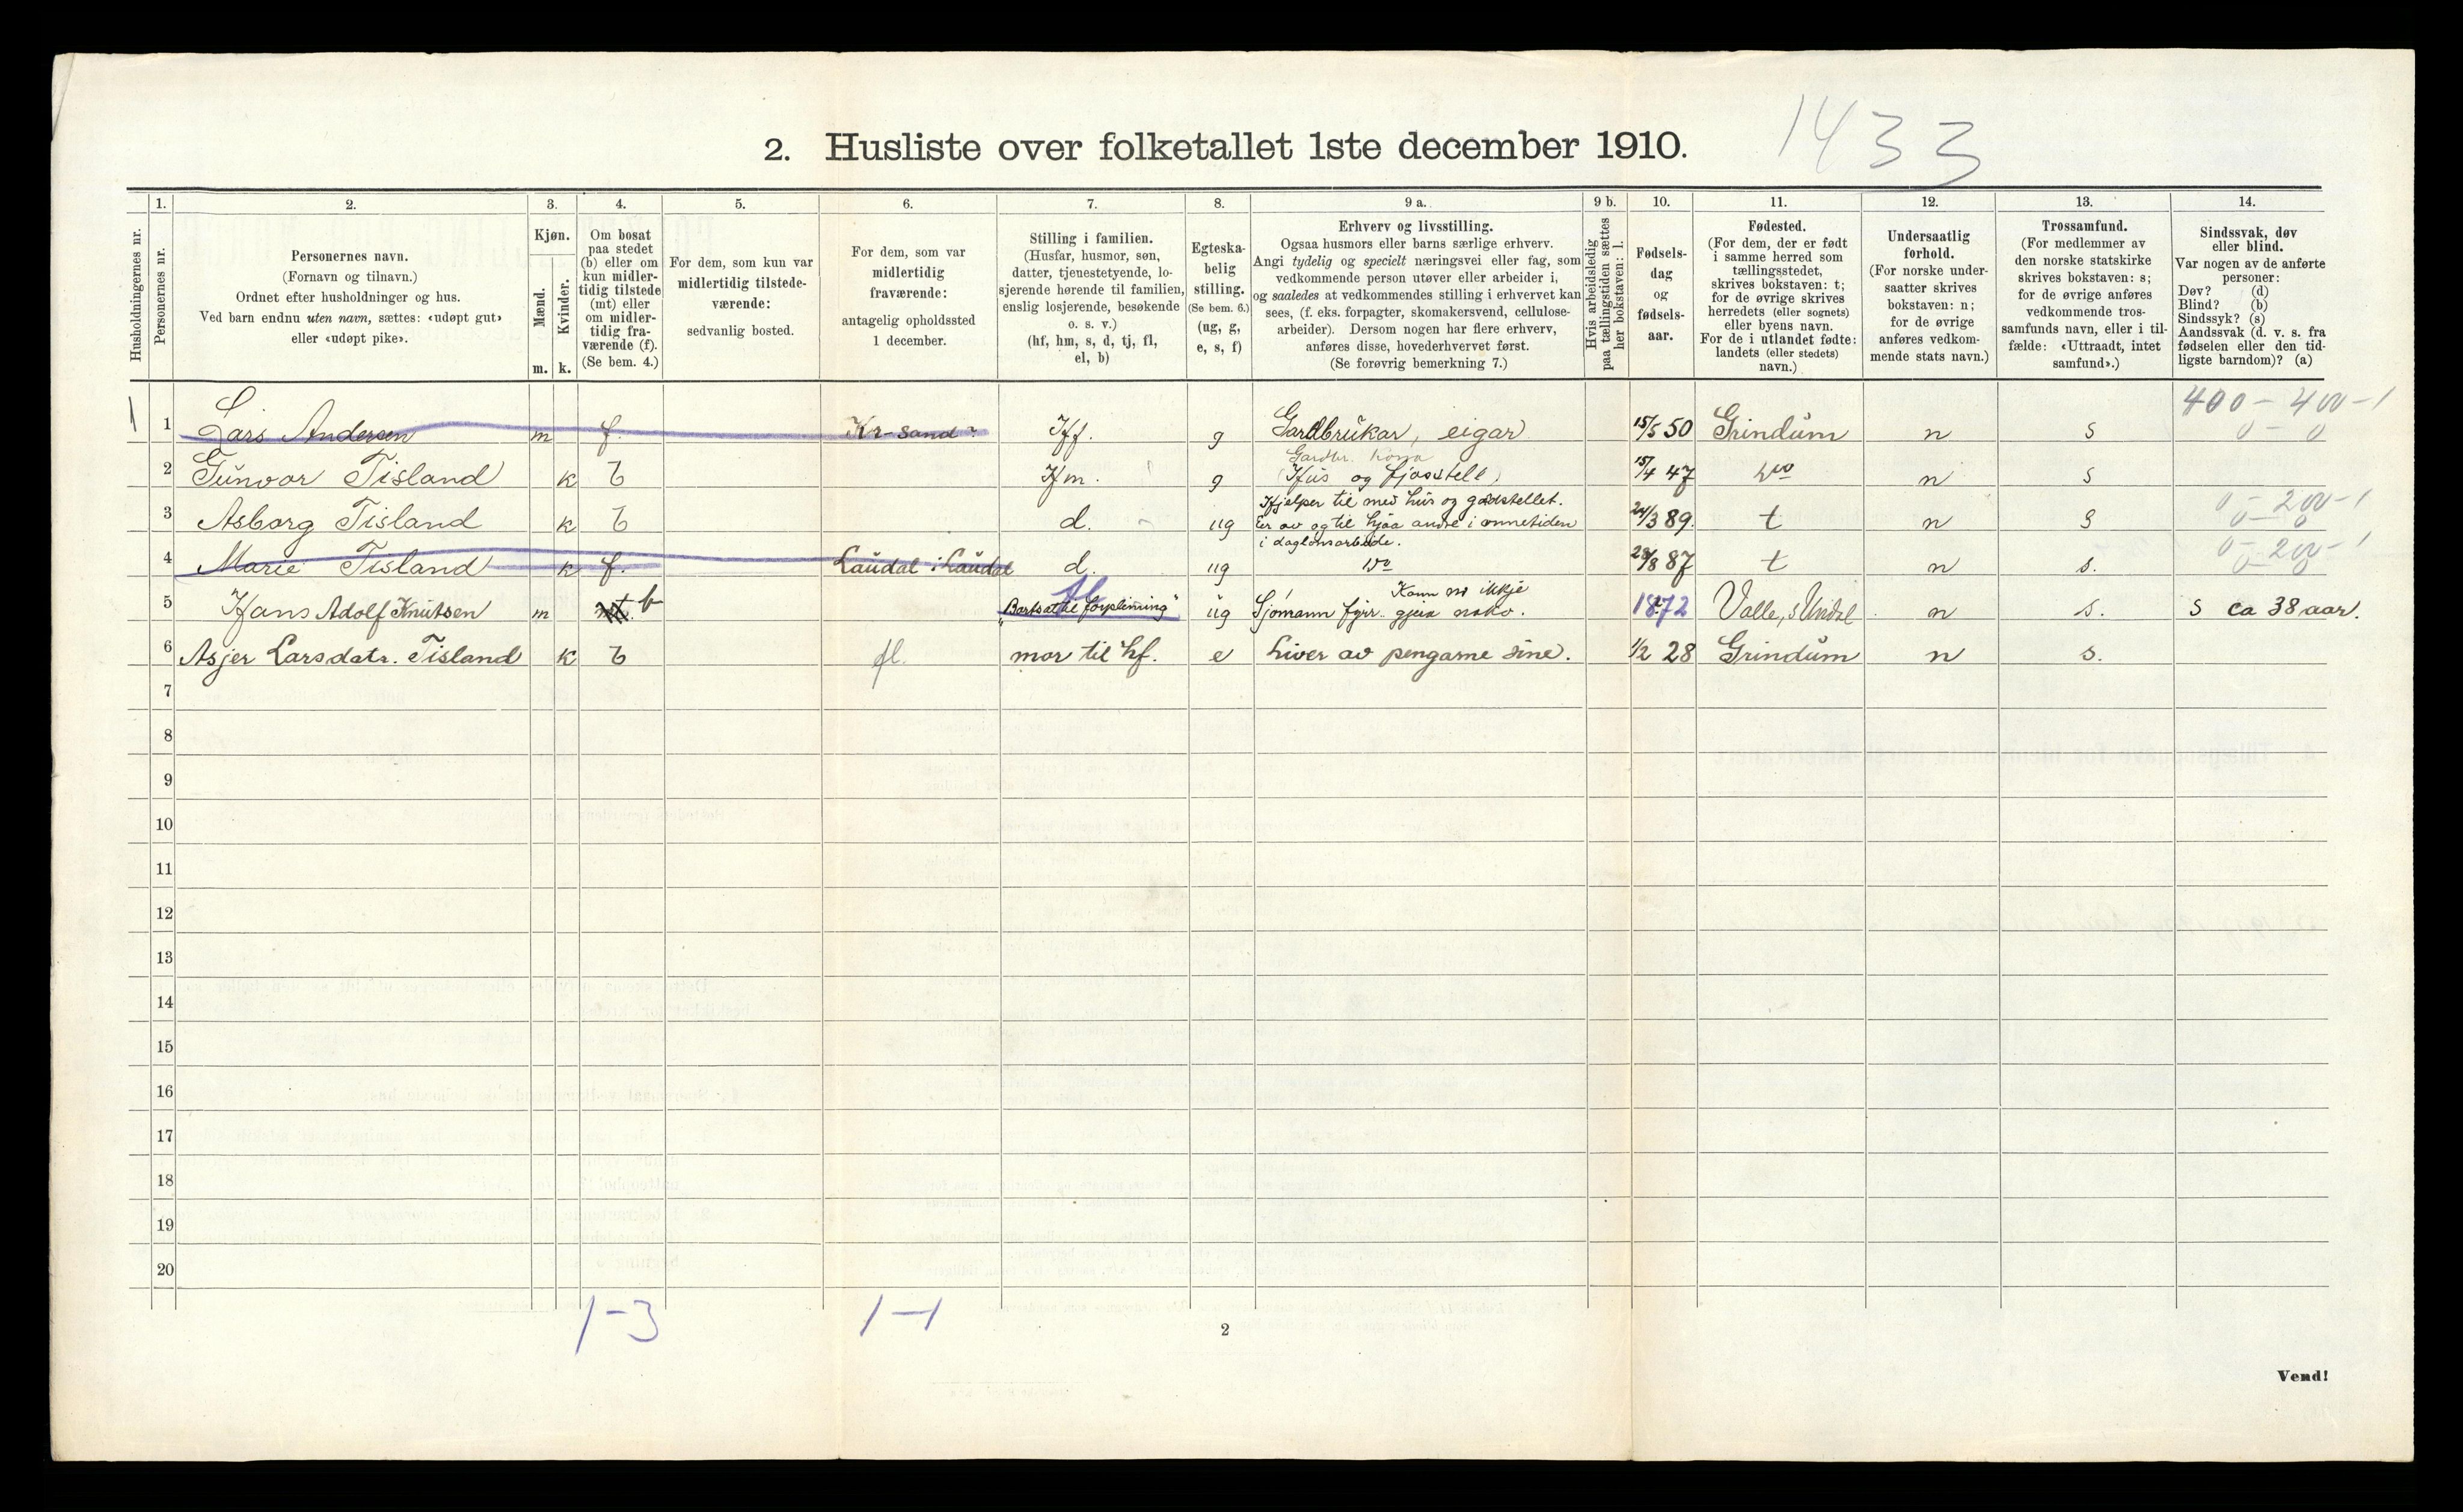 1433
2. Husliste over folketallet 1ste december 1910.
Husholdningernes nr.
1. Personernes nr.
2. Personernes navn.
(Fornavn og tilnavn.)
Ordnet efter husholdninger og hus.
Ved barn endnu uten navn, sættes: «udøpt gut»
eller «udøpt pike».
3. Kjøn.
Mænd. Kvinder.
m. k.
4. Om bosat
paa stedet
(b) eller om
kun midler-
tidig tilstede
(mt) eller
om midler-
tidig fra-
værende (f).
(Se bem. 4.)
5. For dem, som kun var
midlertidig tilstede-
værende:
sedvanlig bosted.
6. For dem, som var
midlertidig
fraværende:
antagelig opholdssted
1 december.
7. Stilling i familien.
(Husfar, husmor, søn,
datter, tjenestetyende, lo-
sjerende hørende til familien,
enslig losjerende, besøkende
o. s. v.)
(hf, hm, s, d, tj, fl,
el, b)
8. Egteska-
belig
stilling.
(Se bem. 6.)
(ug, g,
e, s, f)
9 a. Erhverv og livsstilling.
Ogsaa husmors eller barns særlige erhverv.
Angi tydelig og specielt næringsvei eller fag, som
vedkommende person utøver eller arbeider i,
og saaledes at vedkommendes stilling i erhvervet kan
sees, (f. eks. forpagter, skomakersvend, cellulose-
arbeider). Dersom nogen har flere erhverv,
anføres disse, hovederhvervet først.
(Se forøvrig bemerkning 7.)
9 b. Hvis arbeidsledig
paa tællingstiden sættes
her bokstaven: l.
10. Fødsels-
dag
og
fødsels-
aar.
11. Fødested.
(For dem, der er født
i samme herred som
tællingsstedet,
skrives bokstaven: t;
for de øvrige skrives
herredets (eller sognets)
eller byens navn.
For de i utlandet fødte:
landets (eller stedets)
navn.)
12. Undersaatlig
forhold.
(For norske under-
saatter skrives
bokstaven: n;
for de øvrige
anføres vedkom-
mende stats navn.)
13. Trossamfund.
(For medlemmer av
den norske statskirke
skrives bokstaven: s;
for de øvrige anføres
vedkommende tros-
samfunds navn, eller i til-
fælde: «Uttraadt, intet
samfund».)
14. Sindssvak, døv
eller blind.
Var nogen av de anførte
personer:
Døv? (d)
Blind? (b)
Sindssyk? (s)
Aandssvak (d. v. s. fra
fødselen eller den tid-
ligste barndom)? (a)
400 - 400 - 1
1 1 Lars Andersen m f. Kr-sand? Hf. g Gardbrukar, eigar 15/5 50 Grindum n s 0 - 0
Gardbr. kona
2 Gunvor Tisland k b Hm. g (Hus og fjosstell) 15/4 47 n s
Hjelper til med hus og gardstellet. 0 - 200 - 1
3 Asborg Tisland k b d. ug Eer av og til hjaa andre i onnetiden 24/3 89. t n s 0 - 0
i daglønsarbeide. 0 - 200 - 1
4 Marie Tisland k f. Laudal i Laudal d. ug 28/8 87 t n s.
fl Kann no ikkje
5 Hans Adolf Knutsen m mt. b "Bortsat til forpleining" ug Sjømann fyrr. gjera noko. 1872 Valle, s Undal n s. s ca 38 aar.
6 Asjer Larsdatr. Tisland k b fl. mor til hf. e Liver av pengarne sine. 1/2 28 Grindum n s.
7
8
9
10
11
12
13
14
15
16
17
18
19
20
1-3 1-1
2
Vend!